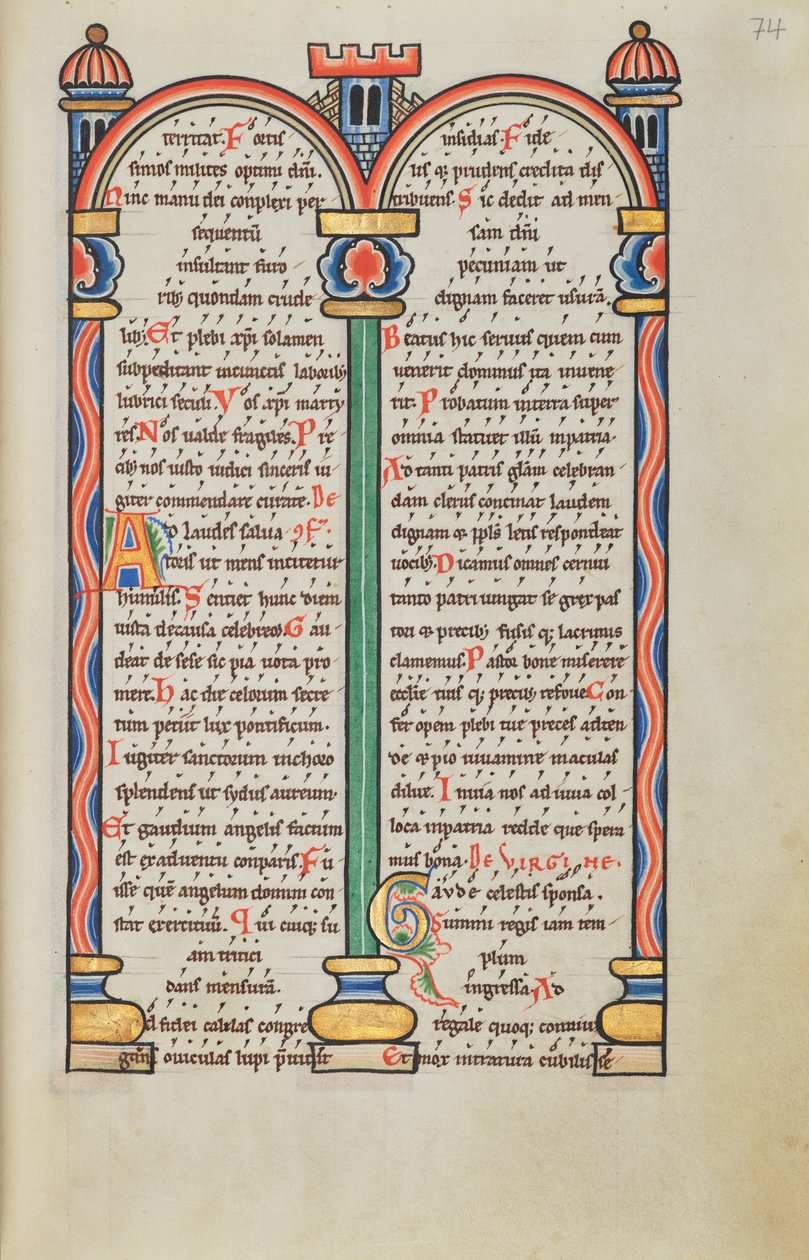 74
territat. Fortis
simos milites optimi dñi.
Ninc manu dei conplexi per
sequentũ
insultant furo
rib; quondam crude
lib;. Et plebi xp̃i solamen
subpeditant incunctis laborib;
lubrici seculi. Vos xp̃i marty
res. Nos ualde fragiles. Pre
cib; nos iusto iudici sinceris iu
giter commendare curate. De
Ad laudes salua 9f.
toris ut mens incitetur
humilis. Sentiet hunc diem
iusta decausa celebrem. Gau
deat de sese sic pia uota pro
mere. Hac die celorum secre
tum petiit lux pontificum.
Iugiter sanctorum inchoro
splendens ut sydus aureum.
Et gaudium angelis factum
est exaduentu conparis. Fu
isse quẽ angelum domini con
stat exercituũ. Qui cuiq; su
am tritici
dans mensurã.
Ad fidei caulas congre
gans ouiculas lupi p̃uidit
insidias. Fide
lis q; prudens credita dis
tribuens. Sic dedit ad men
sam dñi
pecuniam ut
dignam faceret usurã.
Beatus hic seruus quem cum
uenerit dominus ita inuene
rit. Probatum interra super
omnia statuet illũ inpatria.
Ad tanti patris glãm celebran
dam clerus concinat laudem
dignam & pp̃ls letis respondeat
uocib;. Dicamus omnes cernui
tanto patri iungat se grex pas
tori & precib; fusis q; lacrimis
clamemus. Pastor bone miserere
ecclẽ tuis q; precib; refoue. Con
fer opem plebi tue preces adten
de & pio iuuamine maculas
dilue. Inuia nos ad iuua col
loca inpatria redde que spera
mus bona. DE VIRGINE.
Gaude celestis sponsa.
Summi regis iam tem
plum
ingressa. Ad
regale quoq; conuiu
Et mox intratura cubilis se